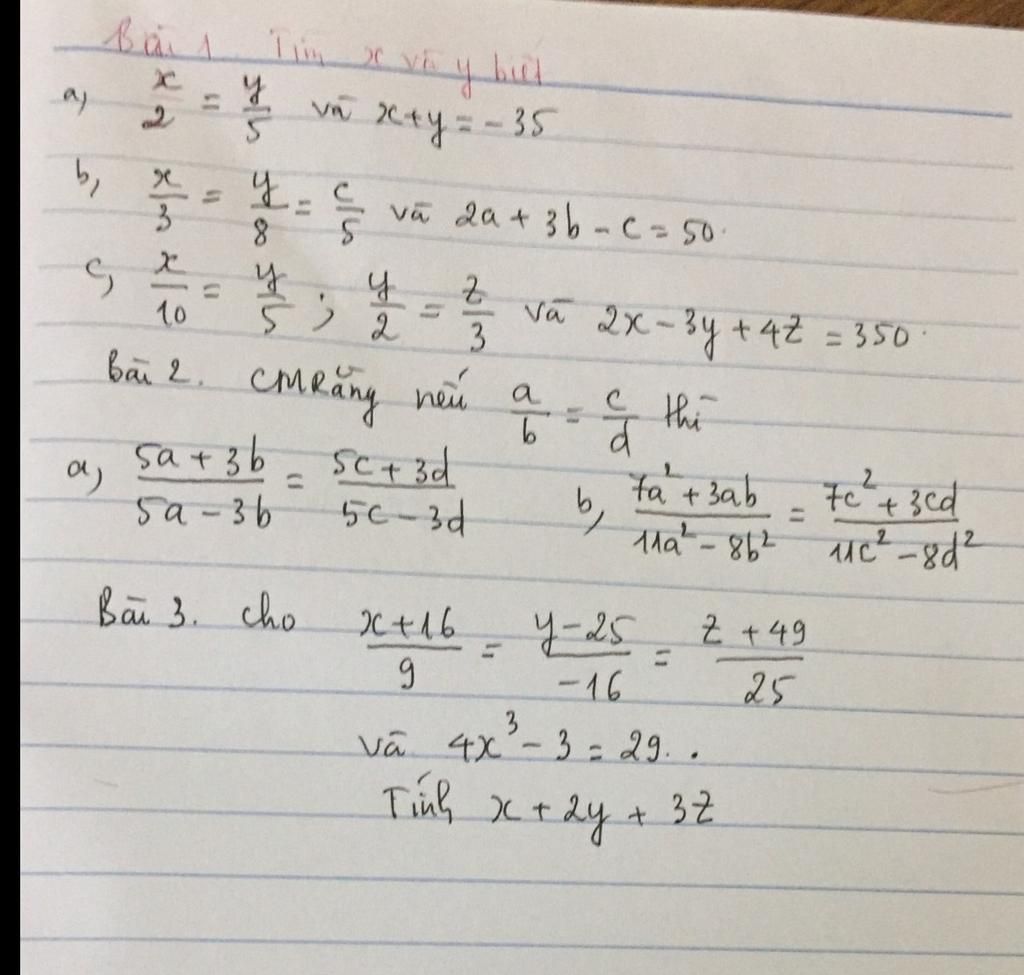 Bài 1 Tìm x và y biết
a, x/2 = y/5 và x+y = -35
b, x/3 = y/8 = c/5 và 2a + 3b - c = 50.
c, x/10 = y/5 ; y/2 = z/3 và 2x - 3y + 4z = 350.
Bài 2. CMRằng nếu a/b = c/d thì
a, (5a + 3b)/(5a - 3b) = (5c + 3d)/(5c - 3d) b, (7a² + 3ab)/(11a² - 8b²) = (7c² + 3cd)/(11c² - 8d²)
Bài 3. Cho (x+16)/9 = (y-25)/(-16) = (z + 49)/25
và 4x³ - 3 = 29..
Tính x + 2y + 3z